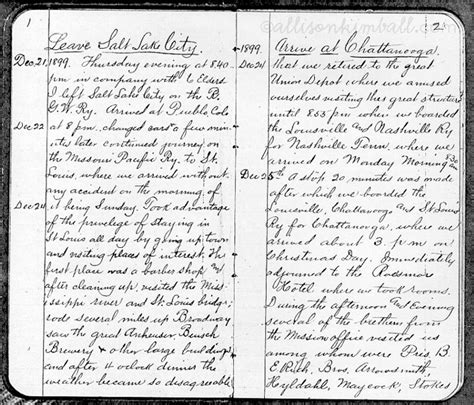 ©allisonkimball.com
1
Leave Salt Lake City.
Dec. 21, 1899. Thursday evening at 8.40
pm in company with 6 Elders
I left Salt Lake City on the R.
G. W. Ry. Arrived at Pueblo, Colo
Dec 22 at 8 p.m. changed cars and a few min-
utes later continued journey on
the Missouri Pacific Ry. to St.
Louis, where we arrived without
any accident on the morning of
Dec 24 it being Sunday. Took advantage
of the privelege of staying in
St Louis all day by going up town
and visiting places of interest. The
first place was a barber shop and
after cleaning up, visited the Miss-
issippi river and St. Louis bridge,
rode several miles up Broadway
saw the great Anheuser Busch
Brewery & other large buildings
and after 4 o'clock dinner the
weather became so disagreeable
2
1899. Arrive at Chattanooga.
Dec 24 that we retired to the great
Union Depot where we amused
ourselves visiting this great structure
until 8.53 pm when we boarded
the Louisville and Nashville Ry
for Nashville Tenn. where we
arrived on Monday Morning 7.30 am
Dec 25 A stop 20 minutes was made
after which we boarded the
Louisville, Chattanooga and St Louis
Ry for Chattanooga, where we
arrived about 3. p. m on
Christmas Day. Immediately
adjourned to the
Hotel where we took rooms.
During the afternoon and Evening
several of the brethern from
the Mission office visited us
among whom were Pres. B.
E. Rich, Bros. Arrowsmith,
Hyldahl, Maycock, Stokes